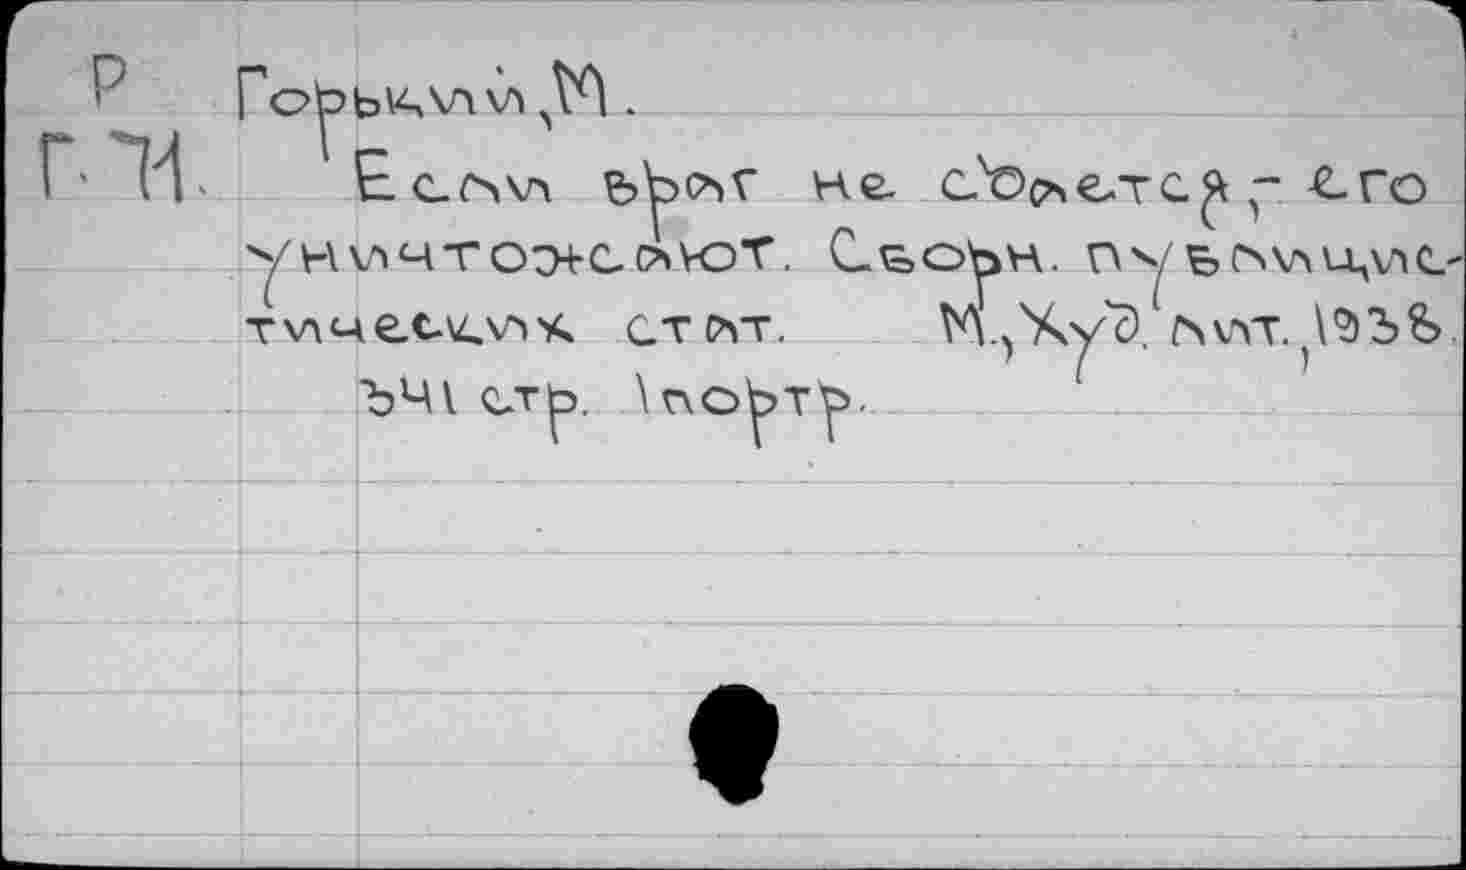 Р
Горький, М.
Г-71.
Если враг не сдается, - его
уничтожают. Сборн. публицис-
тических стат. М., Худ. лит., 1938.
341 стр. 1 портр.